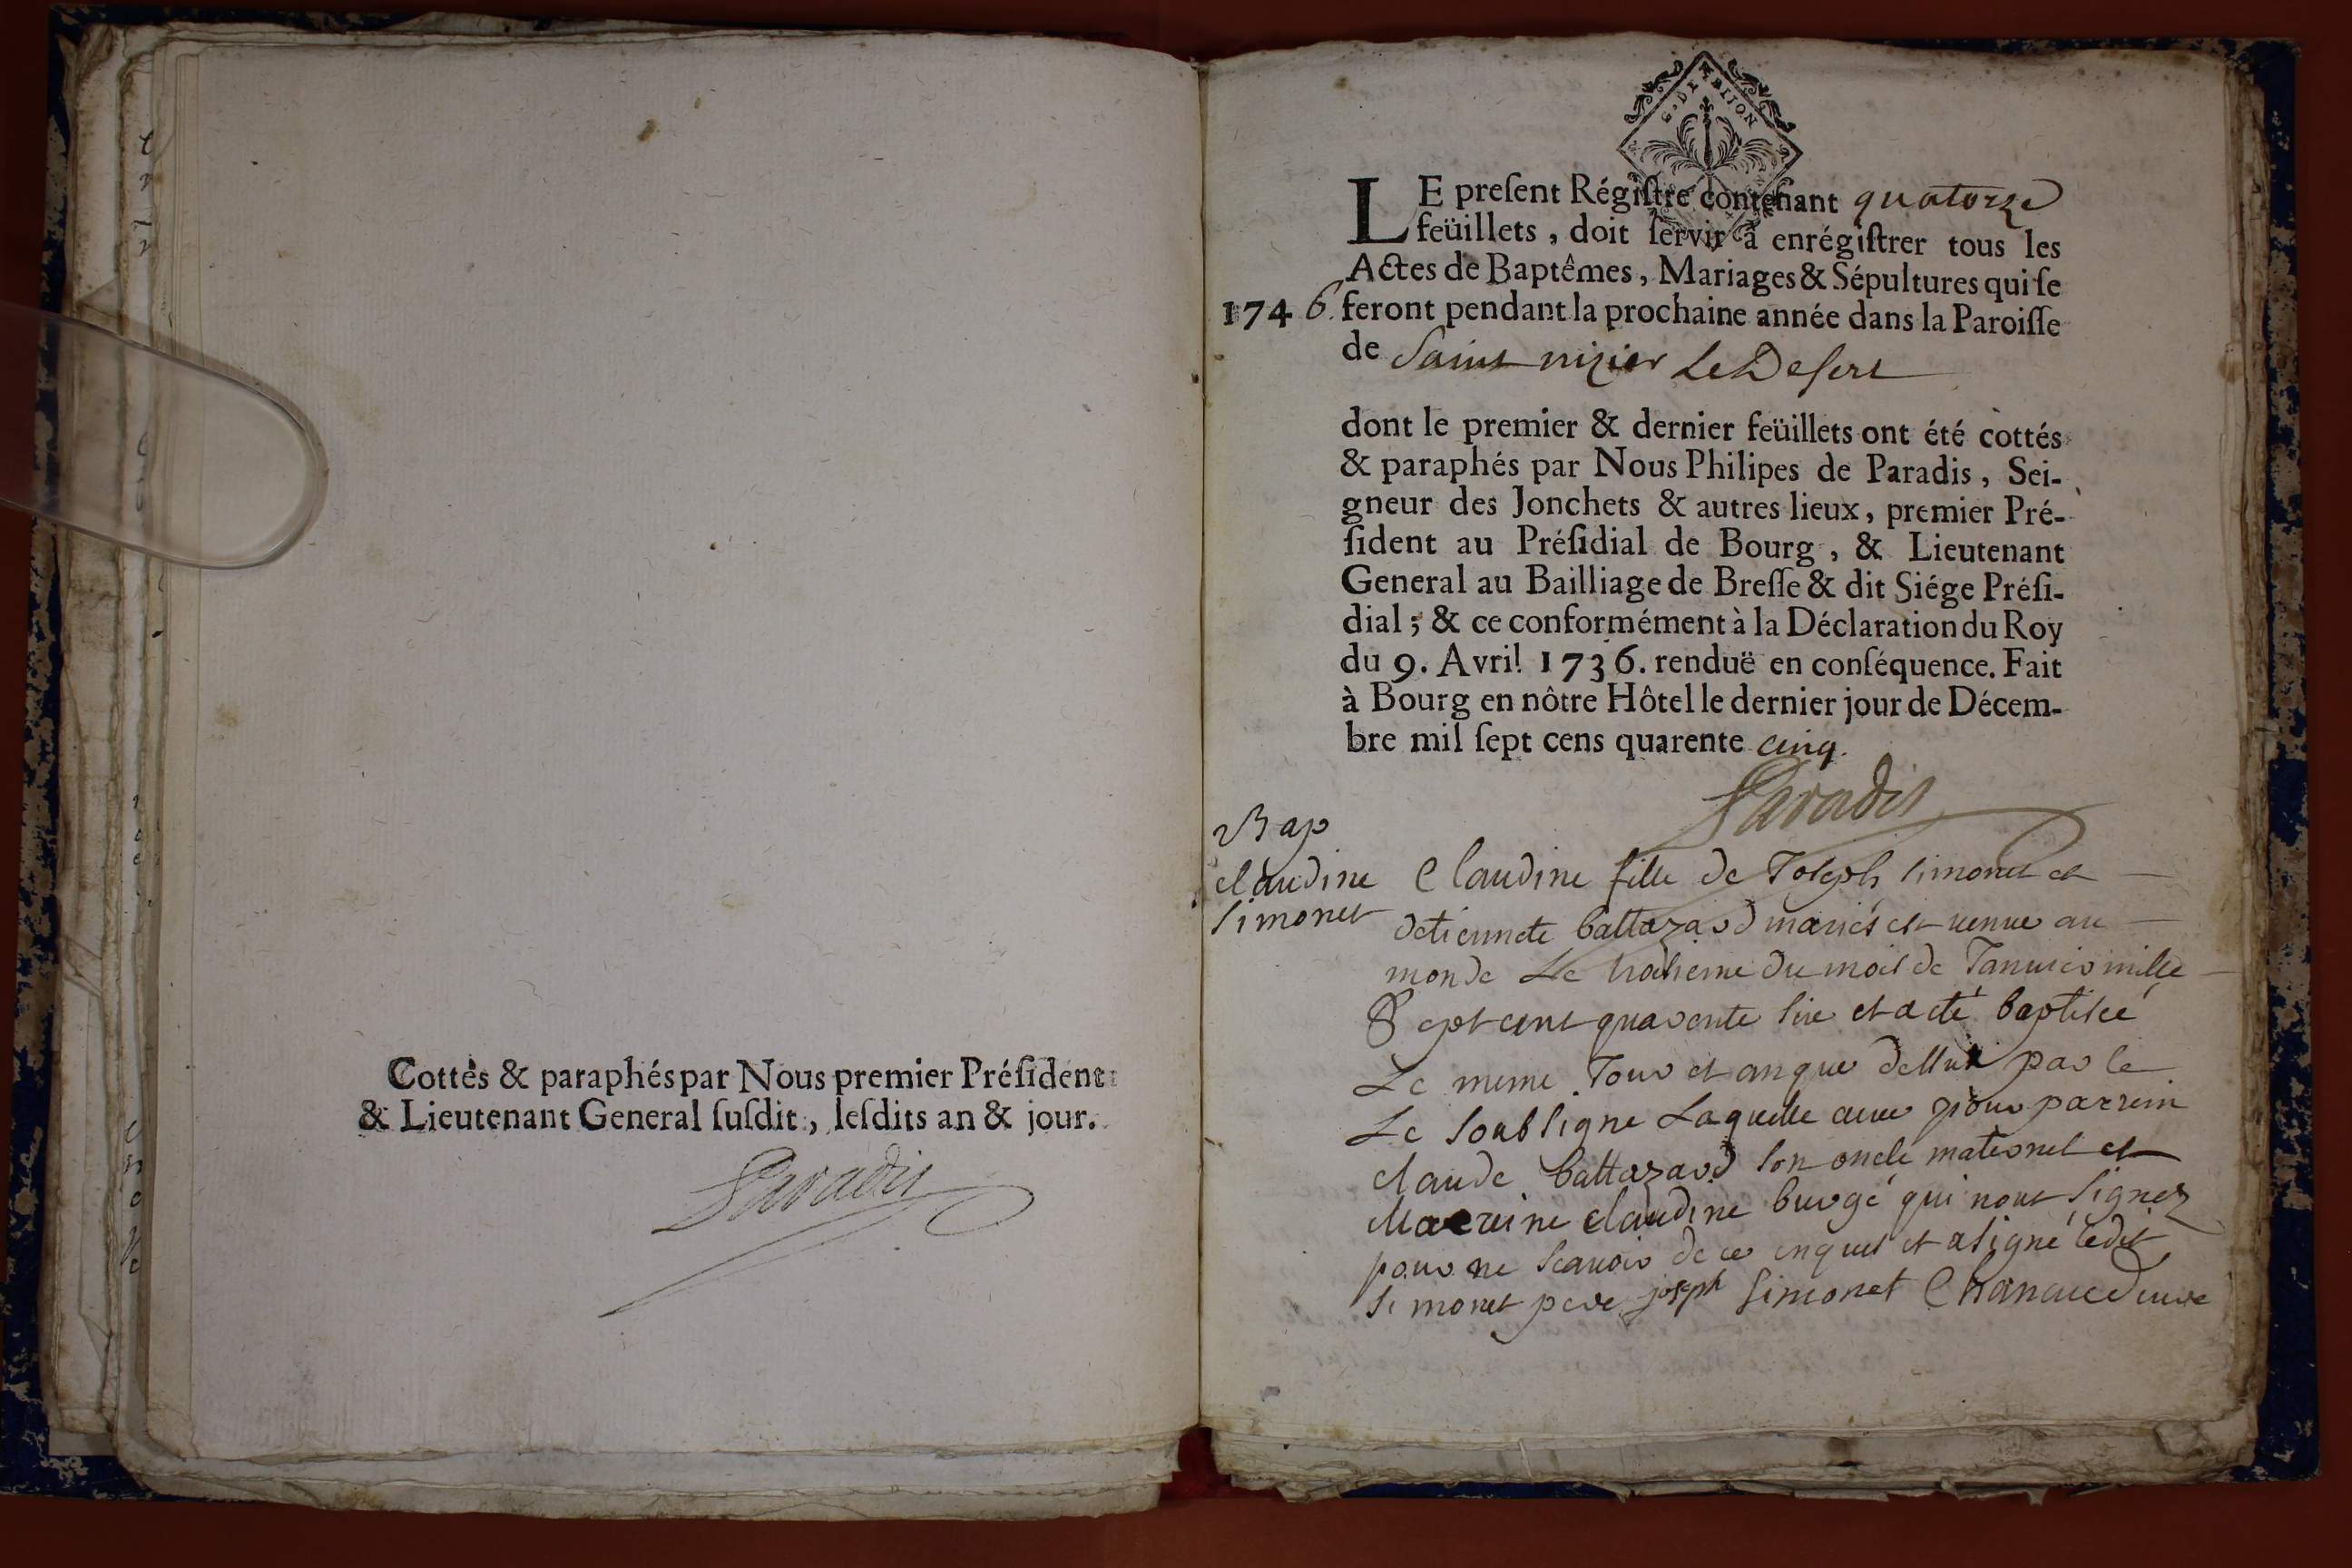 Cottés & paraphés par Nous premier Préſident
& Lieutenant General ſuſdit, leſdits an & jour.
Paradis
G. DE DIJON
LE preſent Régiſtre contenant quatorze
feüillets, doit ſervir à enrégiſtrer tous les
Actes de Baptêmes, Mariages & Sépultures qui ſe
1746. feront pendant la prochaine année dans la Paroiſſe
de Saint nizier Le Deſert
dont le premier & dernier feüillets ont été cottés
& paraphés par Nous Philipes de Paradis, Sei-
gneur des Jonchets & autres lieux, premier Pré-
ſident au Préſidial de Bourg, & Lieutenant
General au Bailliage de Breſſe & dit Siége Préſi-
dial; & ce conformément à la Déclaration du Roy
du 9. Avril 1736. renduë en conſéquence. Fait
à Bourg en nôtre Hôtel le dernier jour de Décem-
bre mil ſept cens quarente cinq.
Paradis
Bap
claudine
simonet
Claudine fille de Joseph simonet et
detiennete baltazard mariés est venue au
monde Le troisieme du mois de Januier mille
Sept cent quarente sixe et a eté baptisée
Le meme Jour et an que dessus par le
Le soubsigne Laquelle a eue pour parrein
claude baltazard son oncle maternel et
Marreine claudine burgé qui nont signez
pour ne scauoir de ce enquis et a signé ledit
simonet pere joseph simonet